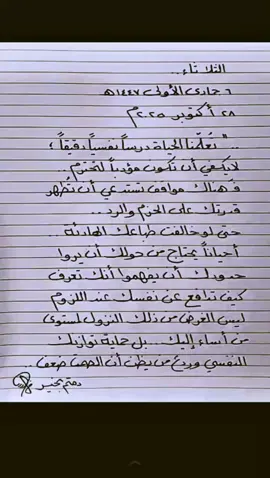 الثلاثاء..
٦ جمادى الأولى ١٤٤٧هـ
٢٨ أكتوبر ٢٠٢٥م
.." تُعلّمنا الحياة درساً نفسياً دقيقاً ؛
لا يكفي أن تكون مؤدباً لتُحترم..
فهناك مواقف تستدعي أن تُظهر
قدرتك على الحزم والرد..
حتى لو خالفت طباعك الهادئة..
أحياناً يحتاج من حولك أن يروا
حدودك أن يفهموا أنك تعرف
كيف تدافع عن نفسك عند اللزوم
ليس الغرض من ذلك النزول لمستوى
من أساء إليك... بل حماية توازنك
النفسي وردع من يظن أن الصمت ضعف..
دمتم بخير